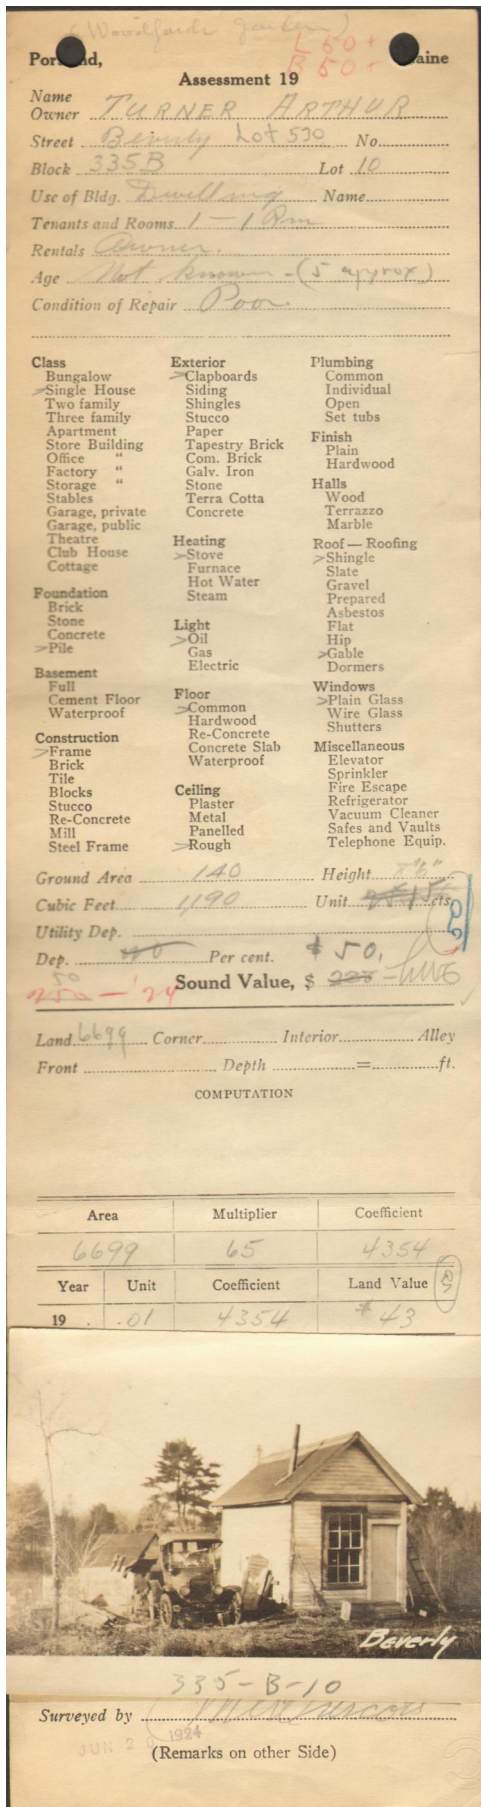 (Woodfords Gardens)
L 50 +
B 50 +
Portland, Maine
Assessment 19
Name
Owner TURNER ARTHUR
Street Beverly Lot 530 No.
Block 335B Lot 10
Use of Bldg. Dwelling Name
Tenants and Rooms 1 - 1 Rm
Rentals Owner.
Age Not known - (5 approx)
Condition of Repair Poor
Class
Bungalow
>Single House
Two family
Three family
Apartment
Store Building
Office "
Factory "
Storage "
Stables
Garage, private
Garage, public
Theatre
Club House
Cottage
Foundation
Brick
Stone
Concrete
>Pile
Basement
Full
Cement Floor
Waterproof
Construction
>Frame
Brick
Tile
Blocks
Stucco
Re-Concrete
Mill
Steel Frame
Exterior
>Clapboards
Siding
Shingles
Stucco
Paper
Tapestry Brick
Com. Brick
Galv. Iron
Stone
Terra Cotta
Concrete
Heating
>Stove
Furnace
Hot Water
Steam
Light
>Oil
Gas
Electric
Floor
>Common
Hardwood
Re-Concrete
Concrete Slab
Waterproof
Ceiling
Plaster
Metal
Panelled
>Rough
Plumbing
Common
Individual
Open
Set tubs
Finish
Plain
Hardwood
Halls
Wood
Terrazzo
Marble
Roof — Roofing
>Shingle
Slate
Gravel
Prepared
Asbestos
Flat
Hip
>Gable
Dormers
Windows
>Plain Glass
Wire Glass
Shutters
Miscellaneous
Elevator
Sprinkler
Fire Escape
Refrigerator
Vacuum Cleaner
Safes and Vaults
Telephone Equip.
Ground Area 140 Height 8'6"
Cubic Feet 1,190 Unit cts.
Utility Dep.
Dep. Per cent. $ 50.
50
250 - '24 Sound Value, $
Land 6699 Corner Interior Alley
Front Depth = ft.
COMPUTATION
Area Multiplier Coefficient
6699 65 4354
Year Unit Coefficient Land Value
19 .01 4354 $43
Beverly
335-B-10
Surveyed by
JUN 2 1924
(Remarks on other Side)